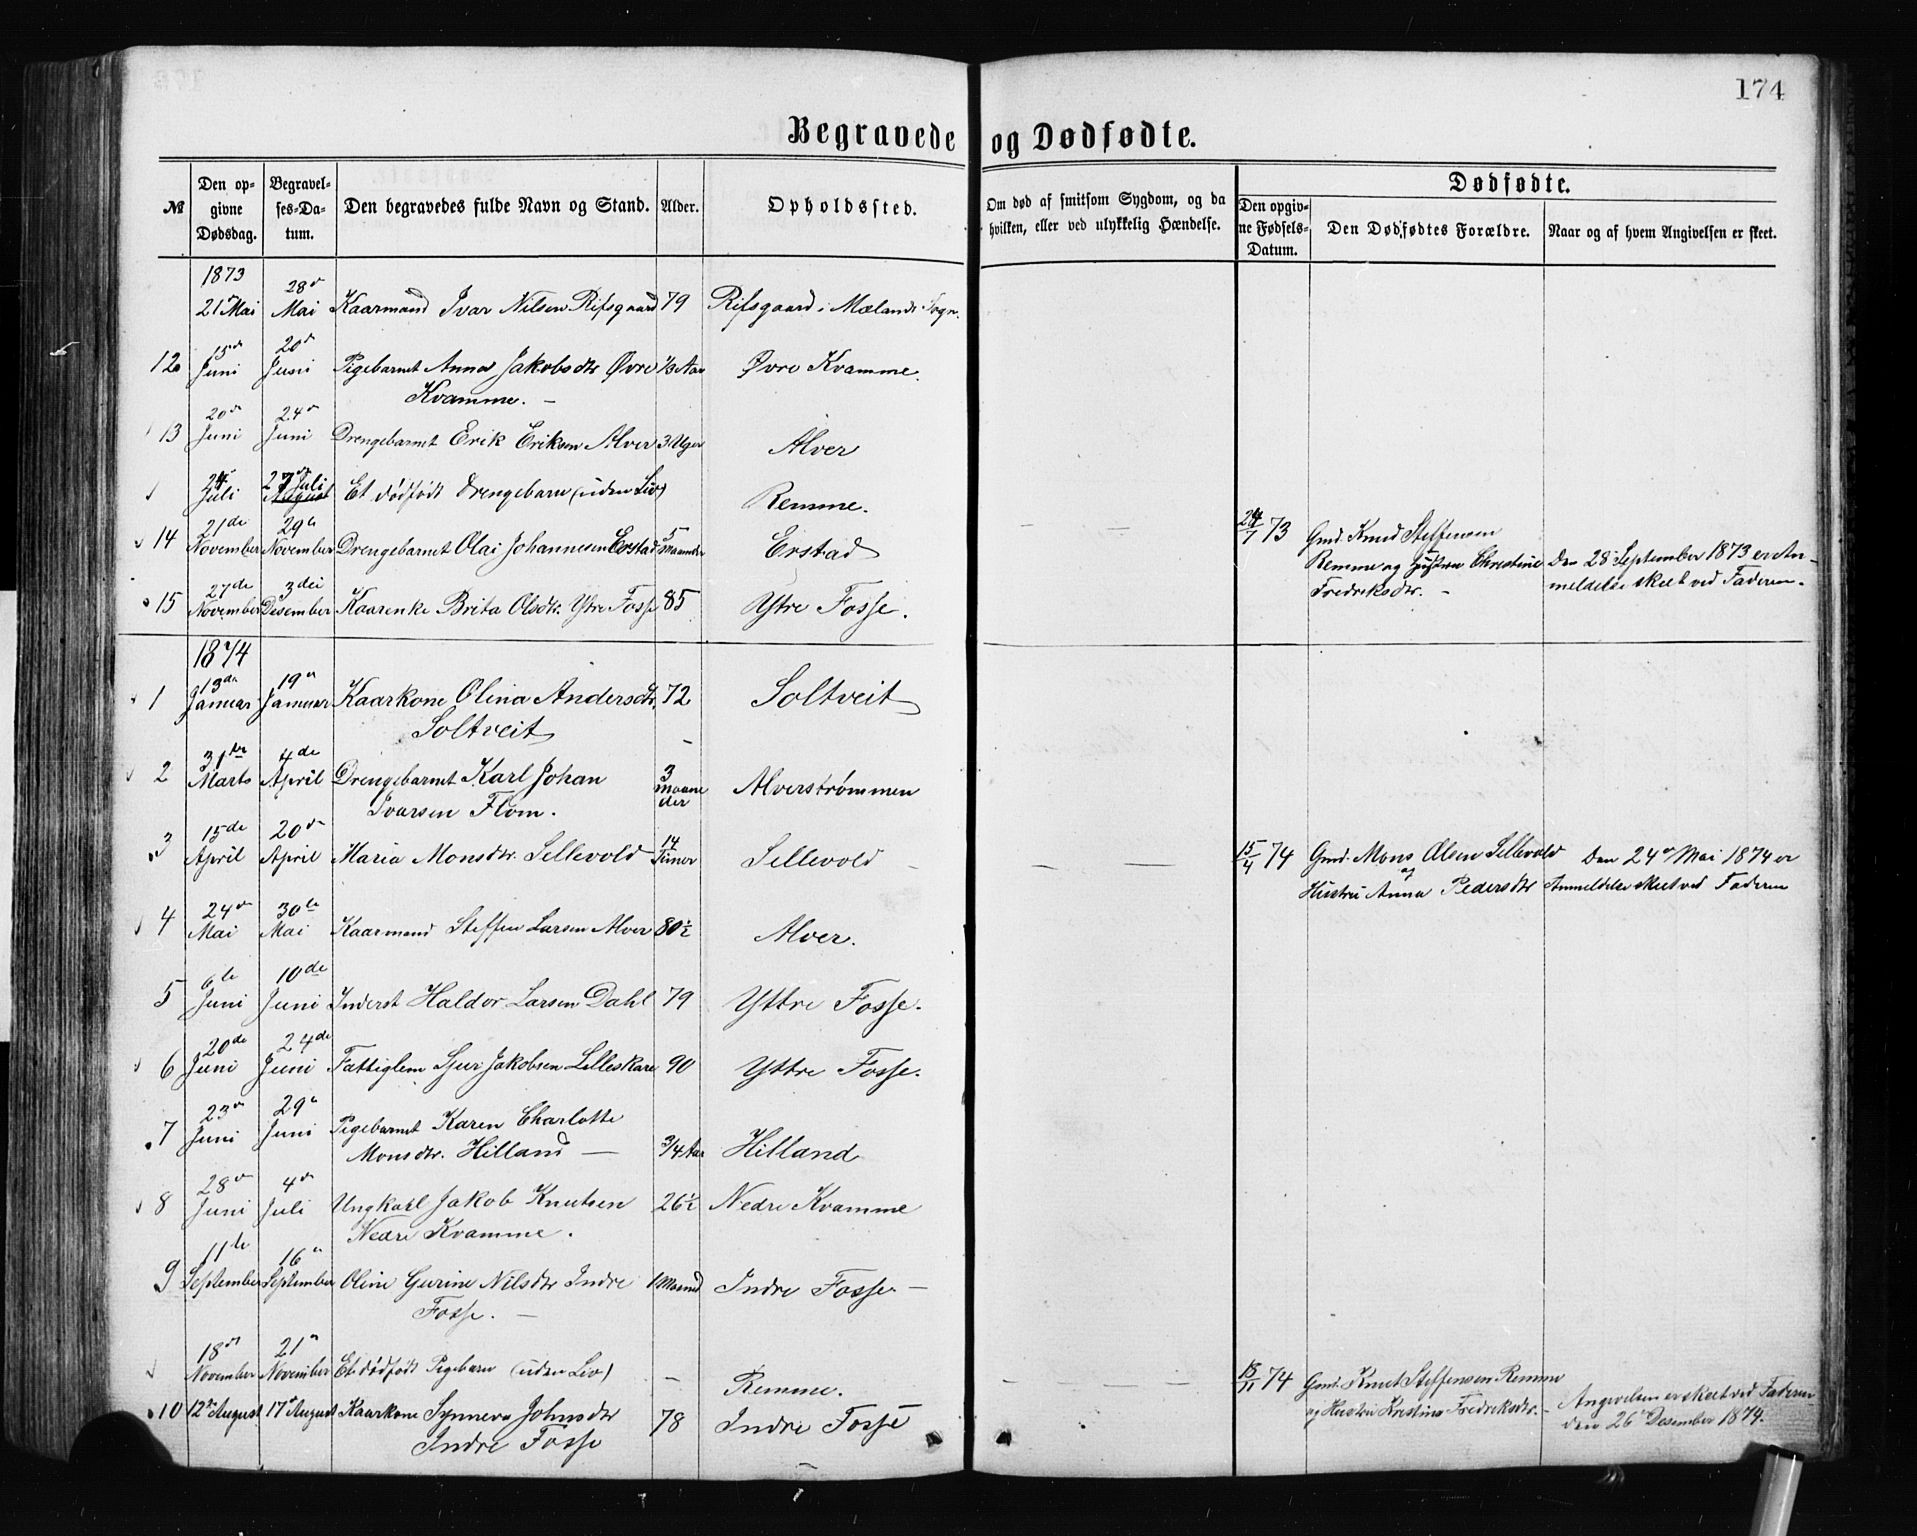 174
Begravede og Dødfødte.
№ Den opgivne Dødsdag. Begravelses-Datum. Den begravedes fulde Navn og Stand. Alder. Opholdssted. Om død af smitsom Sygdom, og da hvilken, eller ved ulykkelig Hændelse. Dødfødte.
Den opgivne Fødsels-Datum. Den Dødfødtes Forældre. Naar og af hvem Angivelsen er skeet.
1873
21 Mai 28de Mai Kaarmand Ivar Nilsen Rifsgaard 79 Rifsgaard i Mælands Sogn.
12 15de Juni 20de Juni Pigebarnet Anna Jakobsdtr Øvre 1/3 Aar Øvre Kvamme.
Kvamme. –
13 20de Juni 24de Juni Drengebarnet Erik Eriksen Alver 3 Uger Alver
24 Juli 27 Juli August Et dødfødt Drengebarn (uden Liv) Remme.
– – 24/7 73 Gmd. Knud Steffensen
Remme og Hustru Christine Den 28 September 1873 er An-
Fredriksdtr. – meldelse skeet ved Faderen.
14 21de November 29de November Drengebarnet Olai Johannesen Erstad 5 Maaneder Erstad
15 27de November 3dei Desember Kaarenke Brita Olsdtr. Ytre Fosse 85 Ytre Fosse.
1874
1 13de Januar 19de Januar Kaarkone Olina Andersdtr. 72 Soltveit
Soltveit
2 31te Marts 4de April Drengebarnet Karl Johan 3 Maaneder Alverstrømmen
Ivarsen Flom.
3 15de April 20de April Maria Monsdtr. Sellevold 14 Timer Sellevold – – – 15/4 74 Gmd. Mons Olsen Sellevold Den 24de Mai 1874 er
og Hustru Anna Pedersdtr Anmeldelse skeet ved Faderen
4 24de Mai 30te Mai Kaarmand Steffen Larsen Alver 80½ Alver.
5 6te Juni 10de Juni Inderst Haldor Larsen Dahl 79 Yttre Fosse.
6 20de Juni 24de Juni Fattiglem Sjur Jakobsen Lilleskare 90 Yttre Fosse.
7 23de Juni 29de Juni Pigebarnet Karen Charlotte
Monsdtr. Hilland – 3/4 Aar Hilland
8 28de Juni 4de Juli Ungkarl Jakob Knutsen 26½ Nedre Kvamme
Nedre Kvamme.
9 11te September 16de September Oline Gurine Nilsdtr Indre 1 Maaned Indre Fosse –
Fosse. –
18de November 21de November Et dødfødt Pigebarn (uden Liv) – Remme. – – 18/11 74 Gmd. Knut Steffensen Remme
og Hustru Kristina Fredriksdtr. – Angivelsen er skeet ved Faderen
den 26 Desember 1874.
10 12te August 17de August Kaarkone Synneva Johnsdtr 78 Indre Fosse
Indre Fosse